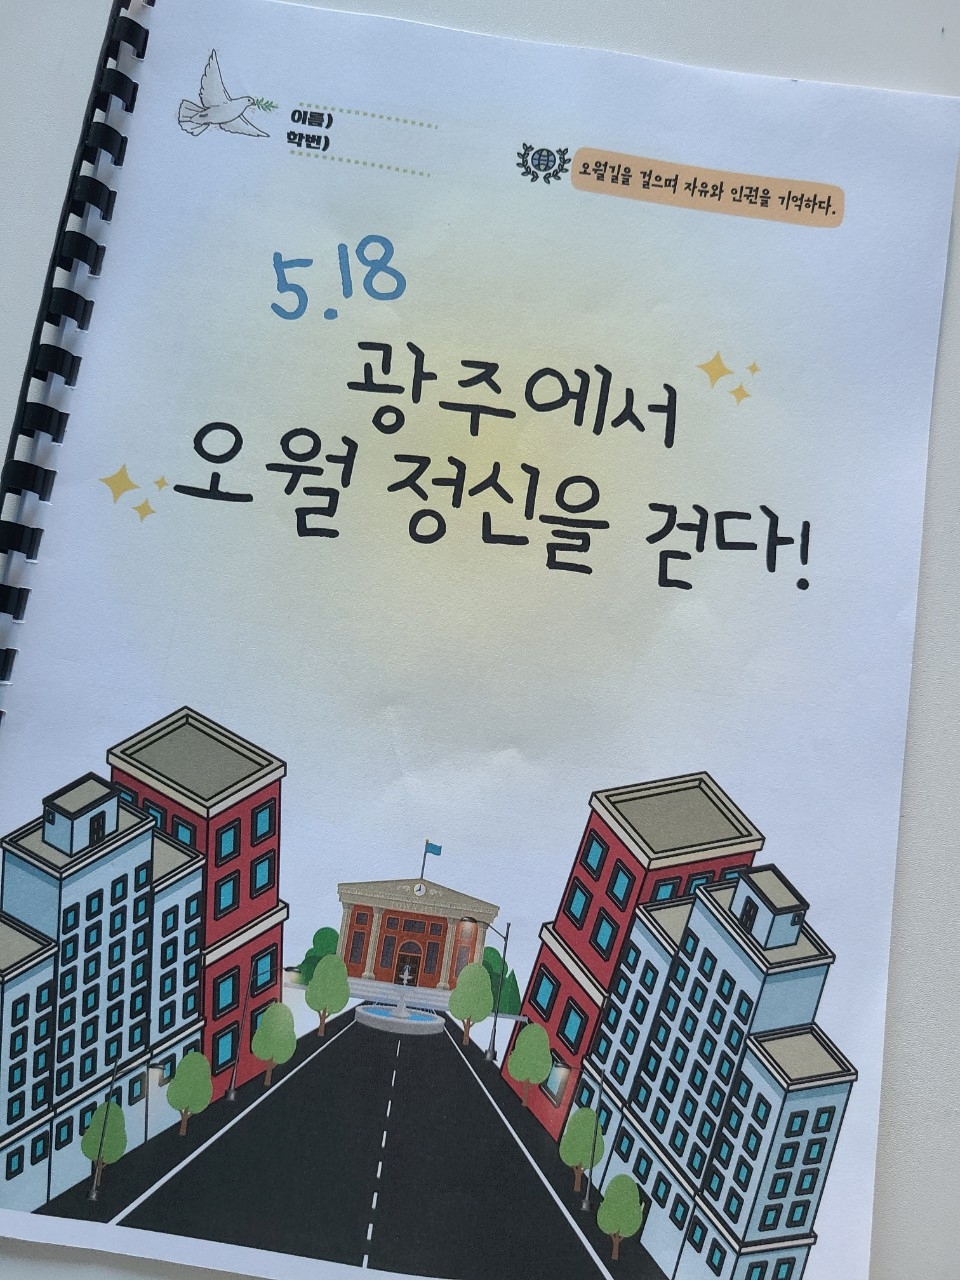 이름)
학번)
오월길을 걸으며 자유와 인권을 기억하다.
5.18
광주에서
오월 정신을 걷다!